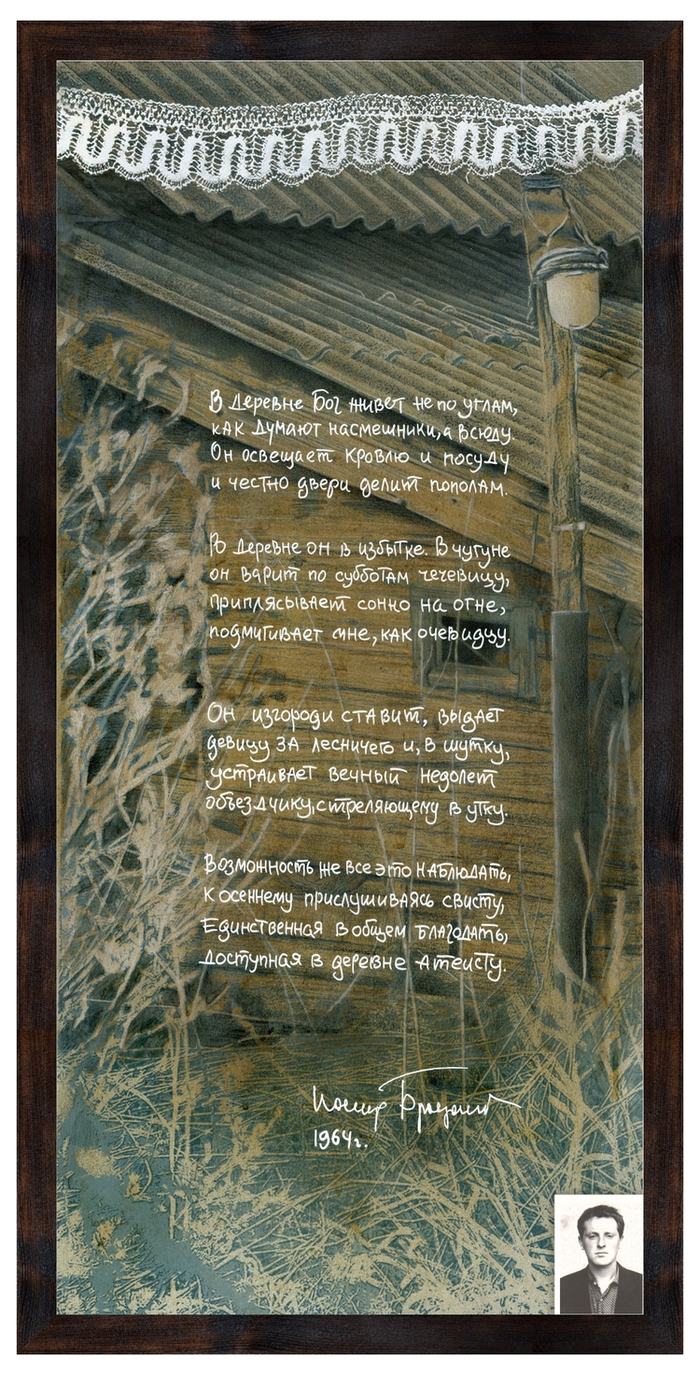 В деревне Бог живет не по углам,
как думают насмешники, а всюду.
Он освещает кровлю и посуду
и честно двери делит пополам.
В деревне он в избытке. В чугуне
он варит по субботам чечевицу,
приплясывает сонно на огне,
подмигивает мне, как очевидцу.
Он изгороди ставит, выдает
девицу за лесничего и, в шутку,
устраивает вечный недолет
объездчику, стреляющему в утку.
Возможность же все это наблюдать,
к осеннему прислушиваясь свисту,
Единственная в общем благодать,
доступная в деревне атеисту.
Иосиф Бродский
1964г.